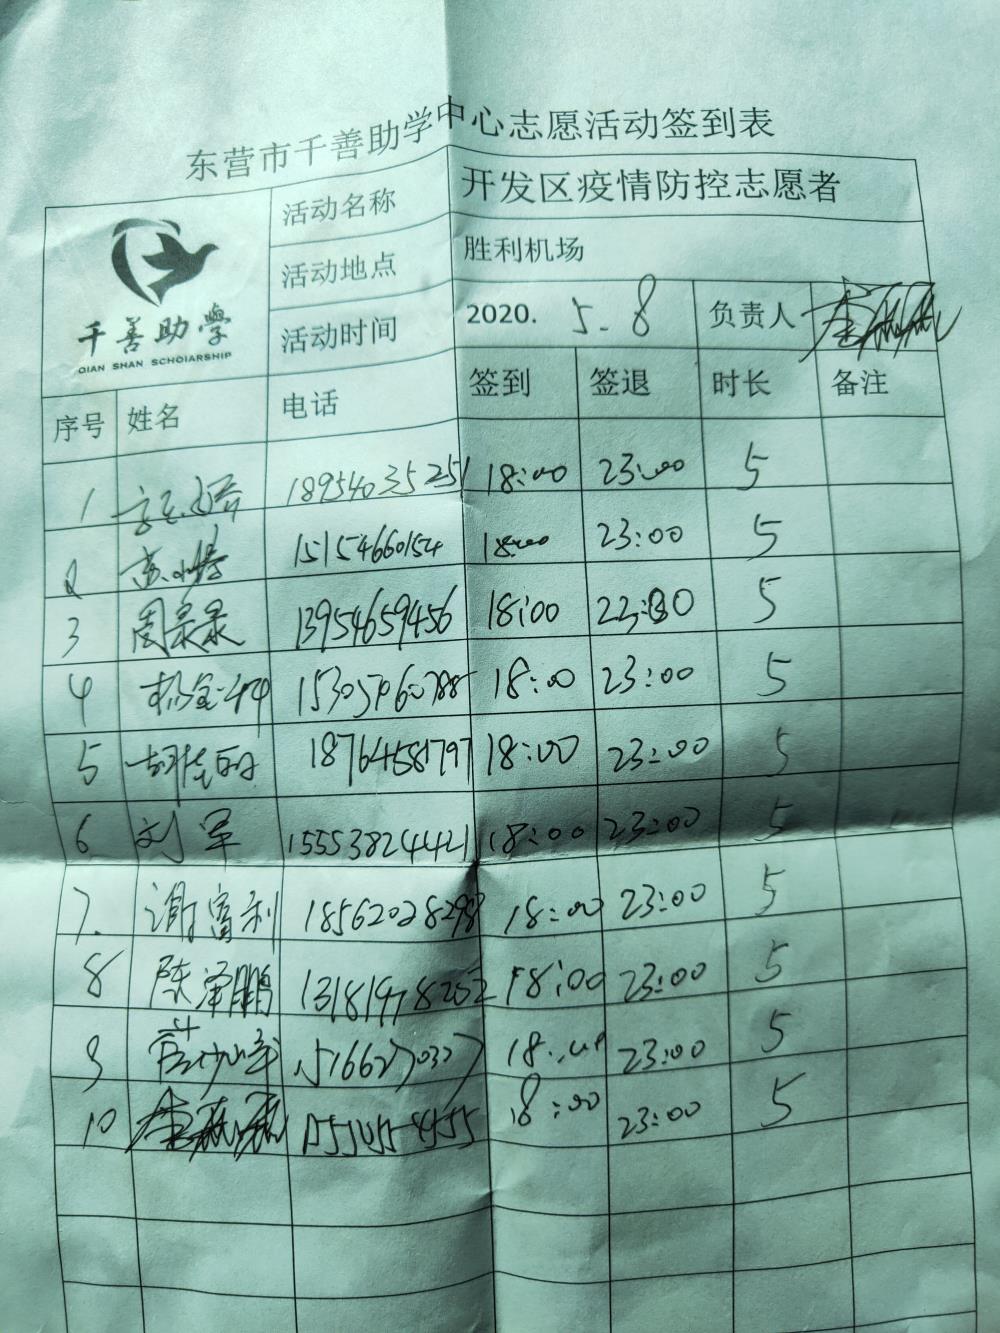 东营市千善助学中心志愿活动签到表
千善助学
QIAN SHAN SCHOlARSHIP
活动名称 开发区疫情防控志愿者
活动地点 胜利机场
活动时间 2020. 5.8 负责人
序号 姓名 电话 签到 签退 时长 备注
1 18954035251 18:00 23:00 5
2 15154660154 18:00 23:00 5
3 13954659456 18:00 5
4 18:00 23:00 5
5 18764581797 18:00 23:00 5
6 刘军 15553824421 18:00 23:00 5
7. 谢富利 18562028298 18:00 23:00 5
8 陈泽鹏 18:00 23:00 5
9 18:00 23:00 5
10 18:00 23:00 5